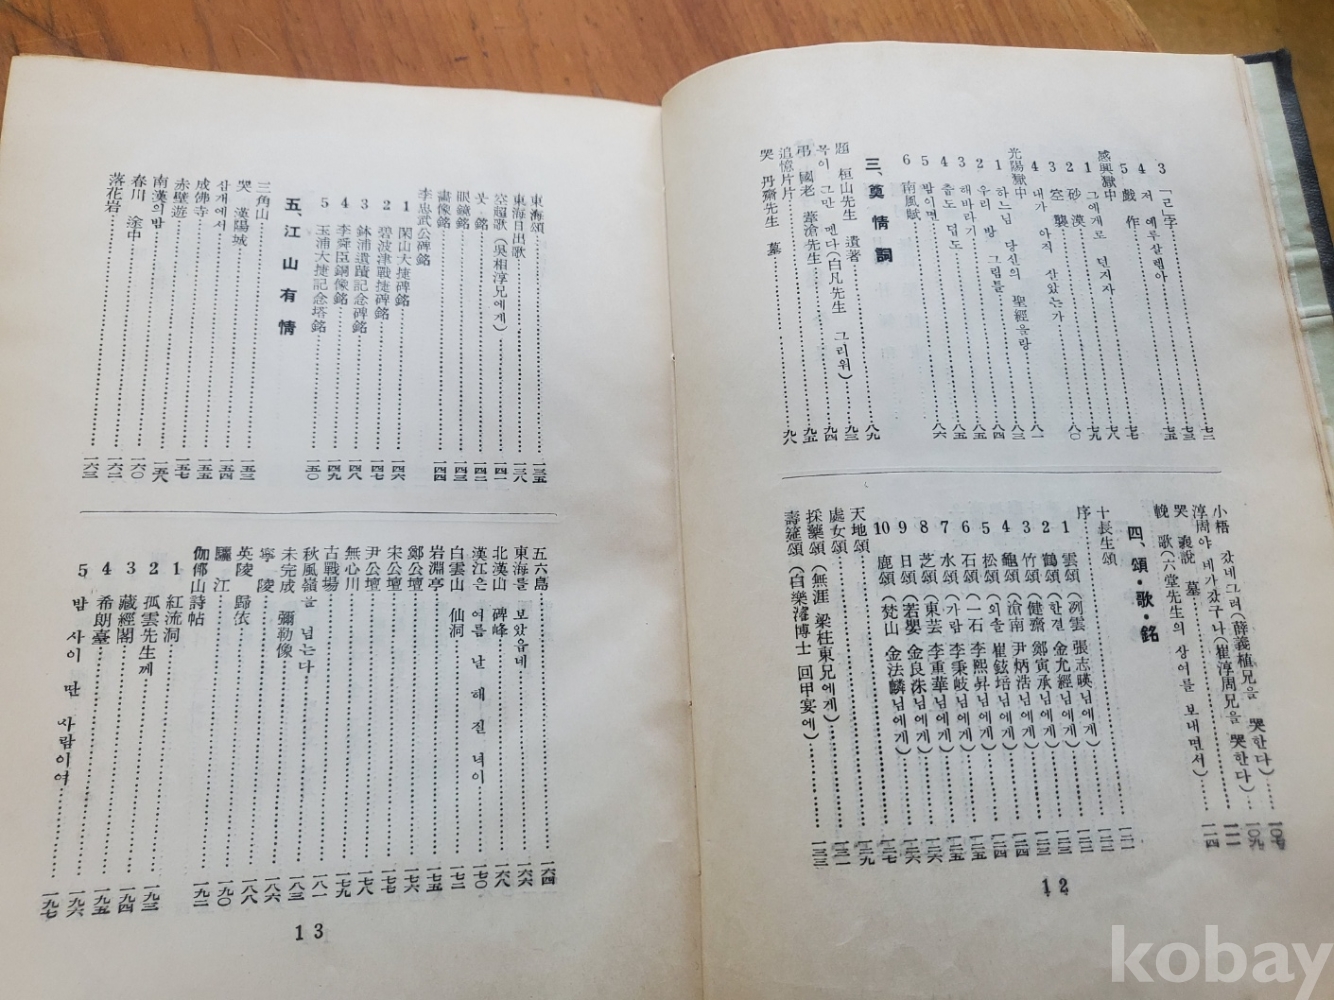 3 「ㄹ」字……七二
4 저 예루살렘아……七三
5 戲作……七五
感興獄中……七七
1 그에게로 던지자……七八
2 砂漠……七九
3 空襲……八〇
4 내가 아직 살았는가……八一
光陽獄中……八三
1 하느님 당신의 聖經을랑
2 우리 방 그림틀……八四
3 해바라기……八五
4 춤도 덥도……八五
5 밤이면……八六
6 南風賦
三、奠情詞……八九
題 桓山先生 遺著……九三
목이 그만 멘다(白凡先生 그리워)……九四
弔 國老 葦滄先生……九五
追憶片片
哭 丹齋先生 墓……九八
小梧 갔네그려(薛義植兄을 哭한다)……一〇七
淳周야 네가갔구나(崔淳周兄을 哭한다)……一〇九
哭 裵說 墓……一一一
輓歌(六堂先生의 상여를 보내면서)……一一四
四、頌·歌·銘
十長生頌……一二一
序……一二二
1 雲頌(冽雲 張志暎님에게)……一二二
2 鶴頌(한결 金允經님에게)……一二三
3 竹頌(健齋 鄭寅承님에게)……一二三
4 龜頌(滄南 尹炳浩님에게)……一二四
5 松頌(외솔 崔鉉培님에게)……一二四
6 石頌(一石 李熙昇님에게)……一二五
7 水頌(가람 李秉岐님에게)……一二五
8 芝頌(東芸 李重華님에게)……一二六
9 日頌(若嬰 金良洙님에게)……一二六
10 鹿頌(梵山 金法麟님에게)……一二七
天地頌……一二九
處女頌……一三一
採藥頌(無涯 梁柱東兄에게)
壽筵頌(白樂濬博士 回甲宴에)……一三三
12
東海頌……一三五
東海日出歌……一三八
空超歌(吳相淳兄에게)……一四一
붓 銘……一四二
眼鏡銘……一四三
畵像銘……一四四
李忠武公碑銘
1 閑山大捷碑銘……一四六
2 碧波津戰捷碑銘……一四七
3 鉢浦遺蹟記念碑銘……一四八
4 李舜臣銅像銘……一四九
5 玉浦大捷記念塔銘……一五〇
五、江山有情
三角山……一五三
哭 漢陽城……一五四
삼개에서……一五五
成佛寺……一五七
赤壁遊……一五八
南漢의밤……一六〇
春川 途中……一六二
落花岩……一六三
五六島……一六四
東海를 보았음네……一六六
北漢山 碑峰……一六八
漢江은 여름 난 해 질 녀이……一七〇
白雲山 仙洞……一七二
岩淵亭……一七五
鄭公壇……一七六
宋公壇……一七七
尹公壇……一七八
無心川……一七九
古戰場……一八一
秋風嶺을 넘는다……一八三
未完成 彌勒像……一八六
寧陵……一八八
英陵 歸依……一九〇
驪江……一九二
伽倻山詩帖
1 紅流洞……一九三
2 孤雲先生께……一九四
3 藏經閣……一九五
4 希朗臺……一九六
5 밤 사이 딴 사람이여……一九七
13
kobay